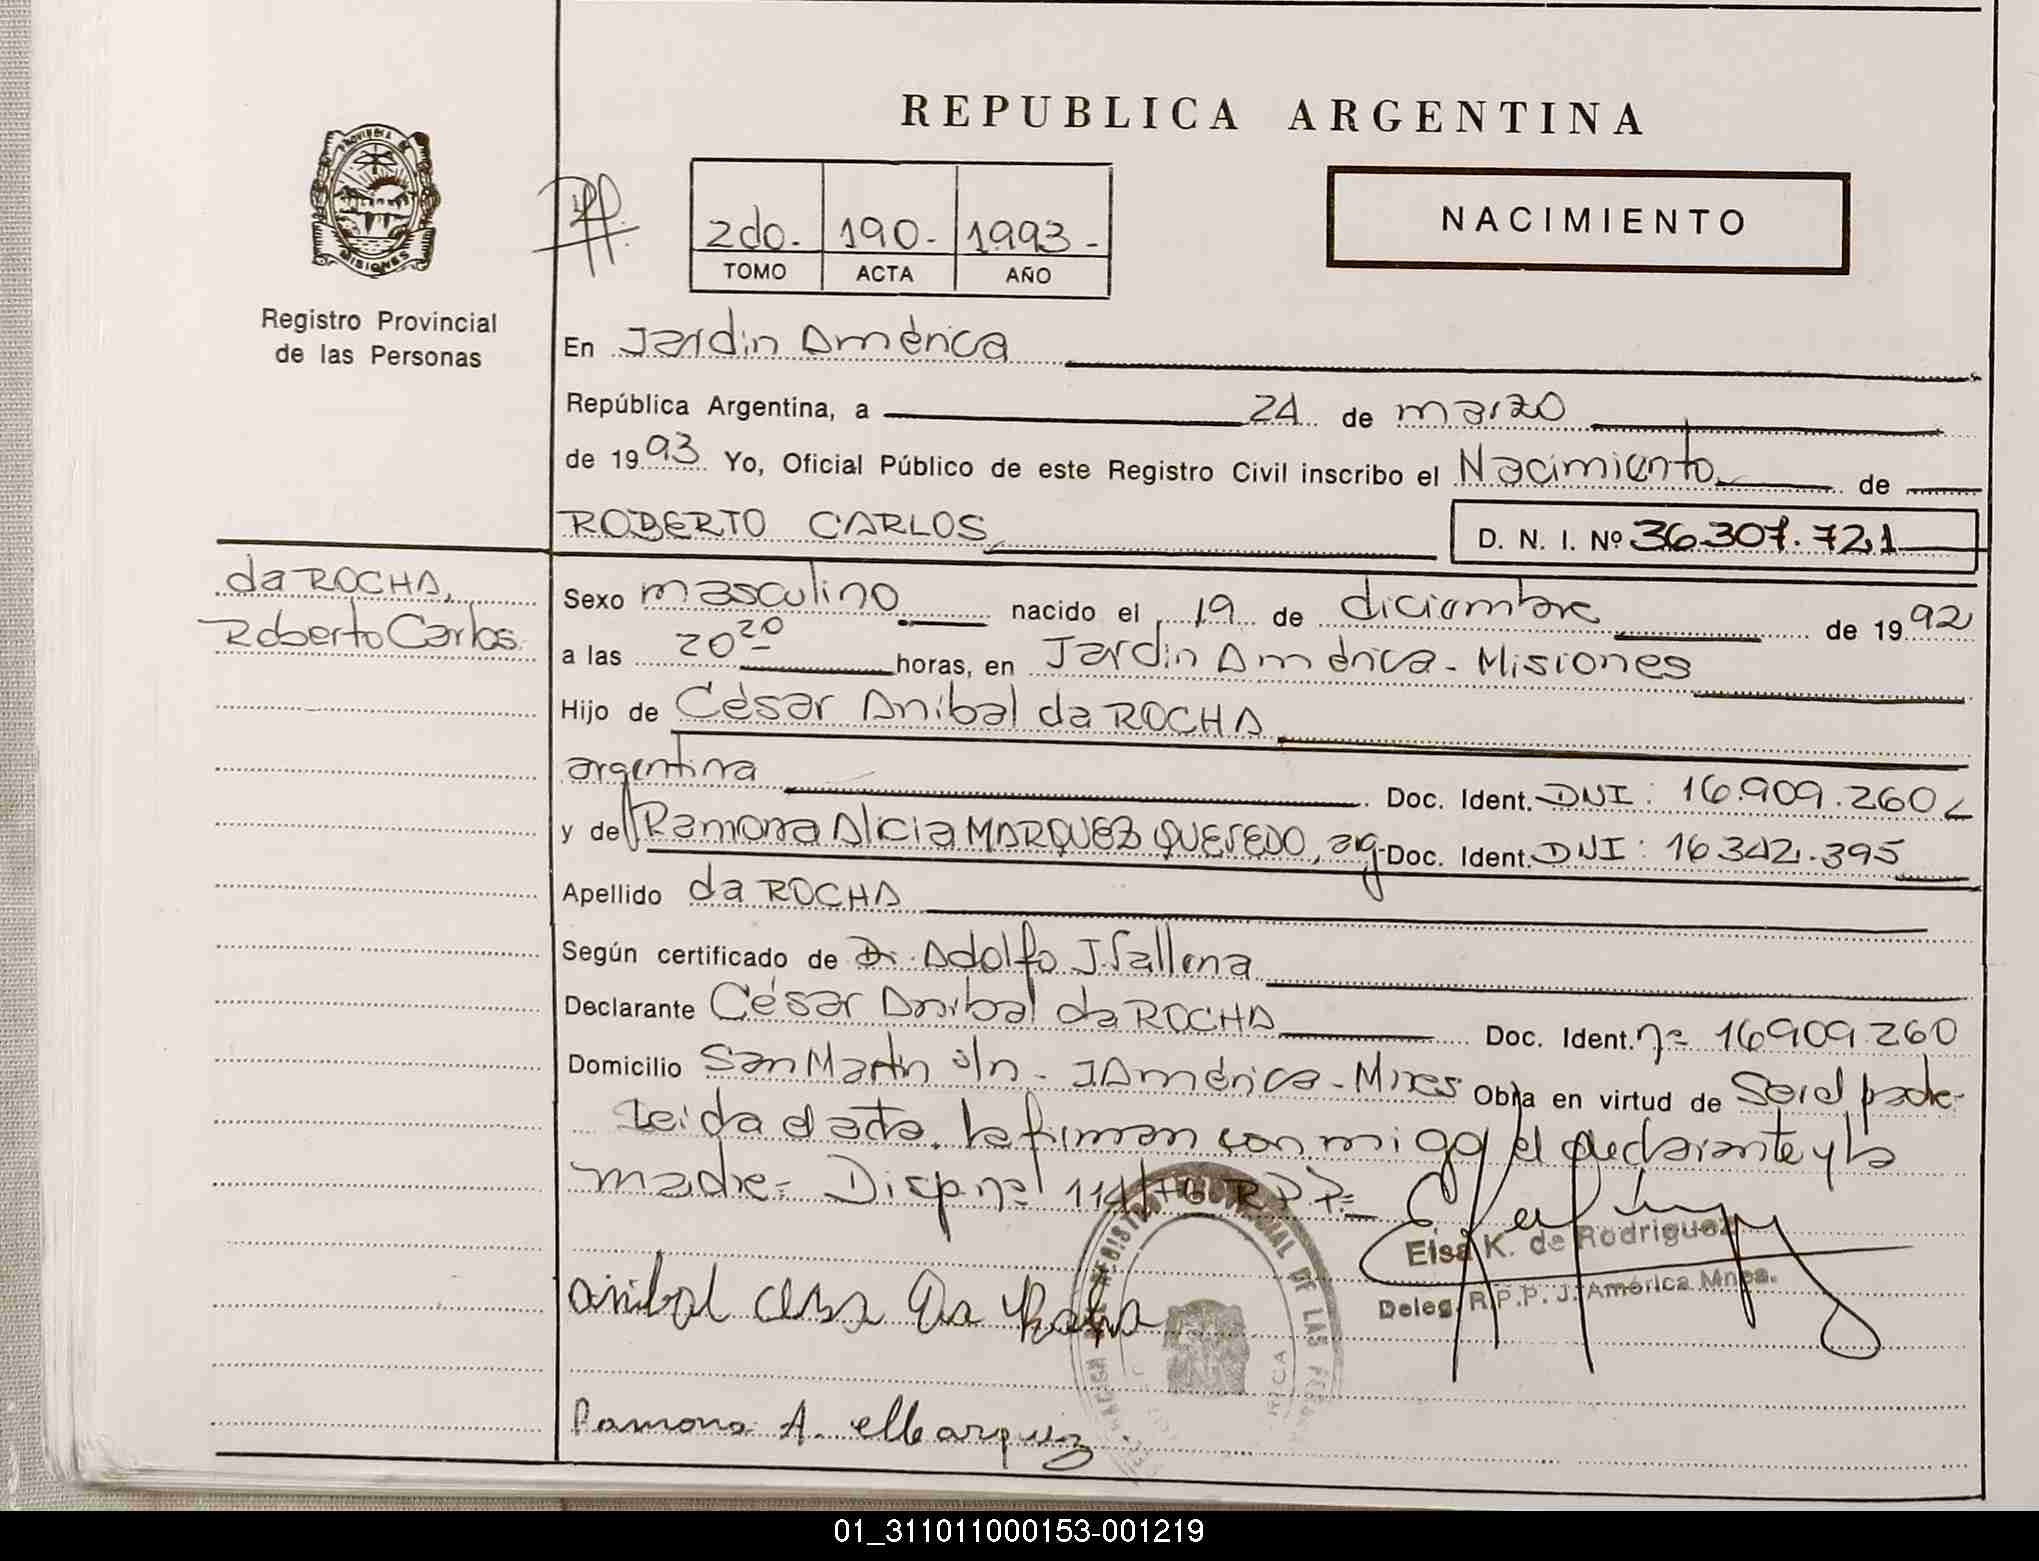 PROVINCIA DE
MISIONES
Registro Provincial
de las Personas
REPUBLICA ARGENTINA
NACIMIENTO
2do. 190. 1993-
TOMO ACTA AÑO
En Jardin América
República Argentina, a 24 de marzo
de 1993 Yo, Oficial Público de este Registro Civil inscribo el Nacimiento de
ROBERTO CARLOS D. N. I. Nº 36.307.721
da ROCHA,
Roberto Carlos
Sexo masculino nacido el 19 de diciembre de 1992
a las 20 20 horas, en Jardin América - Misiones
Hijo de César Anibal da ROCHA
argentina Doc. Ident. DNI: 16.909.260
y de Ramona Alicia MARQUEZ QUEVEDO, arg. Doc. Ident. DNI: 16.342.395
Apellido da ROCHA
Según certificado de Dr. Adolfo J.
Declarante César Anibal da ROCHA Doc. Ident. nº 16909.260
Domicilio San Martín s/n - J América - Mnes Obra en virtud de Ser el padre-
Leida el acta, la firman conmigo el declarante y la
madre= Disp. nº 114/76 R P P.=
Elsa K. de Rodriguez
Deleg. R.P.P. J. América Mnes.
REGISTRO PROVINCIAL DE LAS
anibal cesar Da Rocha
Ramona A. Marquez
01_311011000153-001219